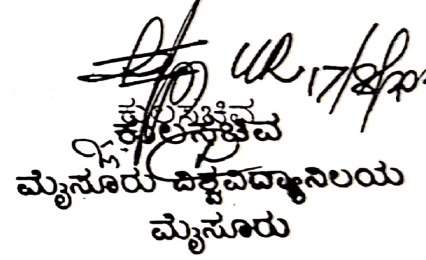 17/8/20
ಕುಲಸಚಿವ
ಕುಲಸಚಿವ
ಮೈಸೂರು ವಿಶ್ವವಿದ್ಯಾನಿಲಯ
ಮೈಸೂರು